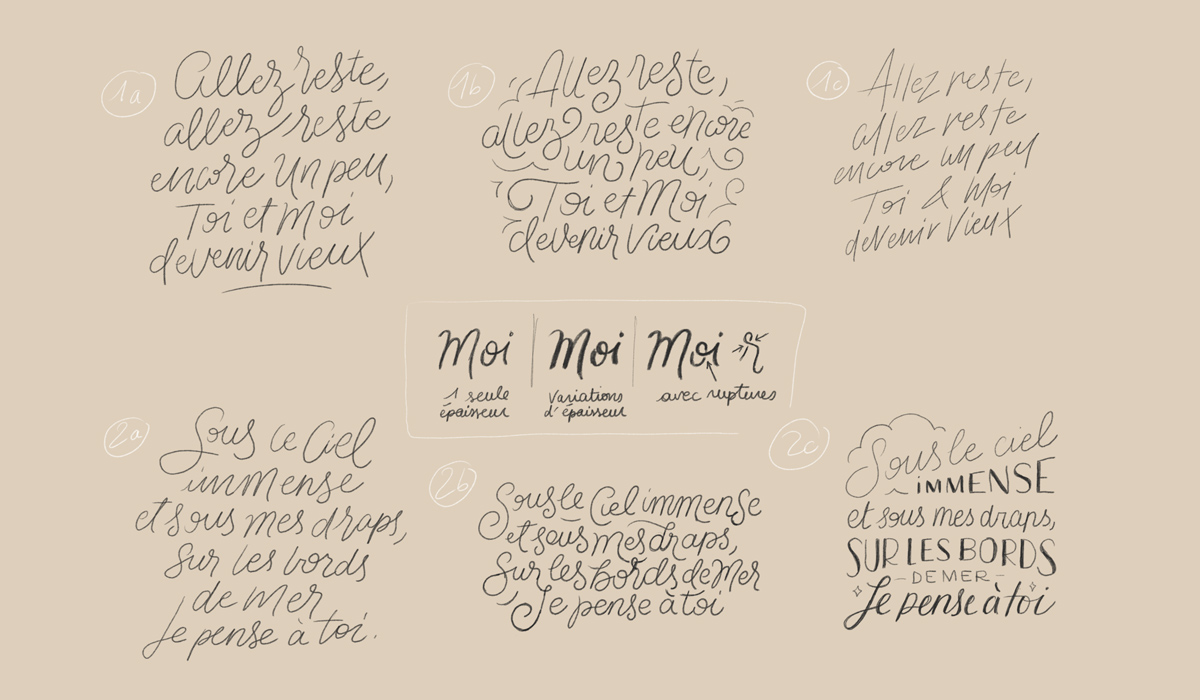 1a
Allez reste,
allez reste
encore un peu,
Toi et Moi
devenir vieux
1b
Allez reste,
allez reste encore
un peu,
Toi et Moi
devenir vieux
1c
Allez reste,
allez reste
encore un peu
Toi & Moi
devenir vieux
Moi
1 seule
épaisseur
Moi
variations
d'épaisseur
Moi
avec ruptures
2a
Sous ce Ciel
immense
et sous mes draps,
Sur les bords
de mer
Je pense à toi.
2b
Sous le Ciel immense
et sous mes draps,
Sur les bords de Mer
Je pense à toi
2c
Sous le ciel
iMMENSE
et sous mes draps,
SUR LES BORDS
- DE MER -
Je pense à toi